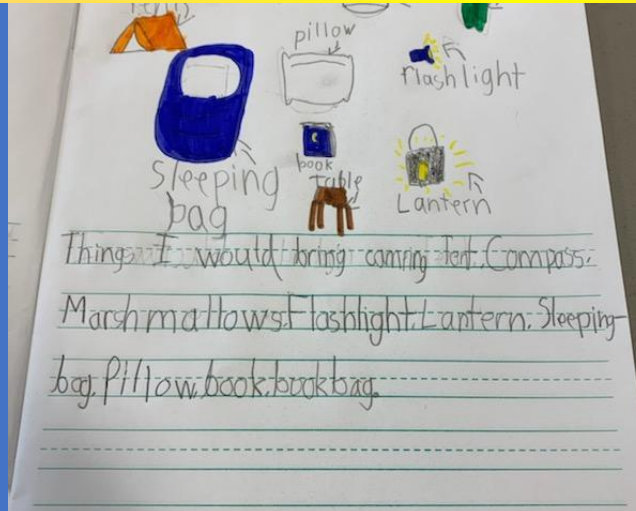 pillow
flashlight
sleeping
bag
book
table
Lantern
Things I would bring camping Tent. Compass.
Marshmallows. Flashlight. Lantern. Sleeping-
bag. Pillow. book. bookbag.